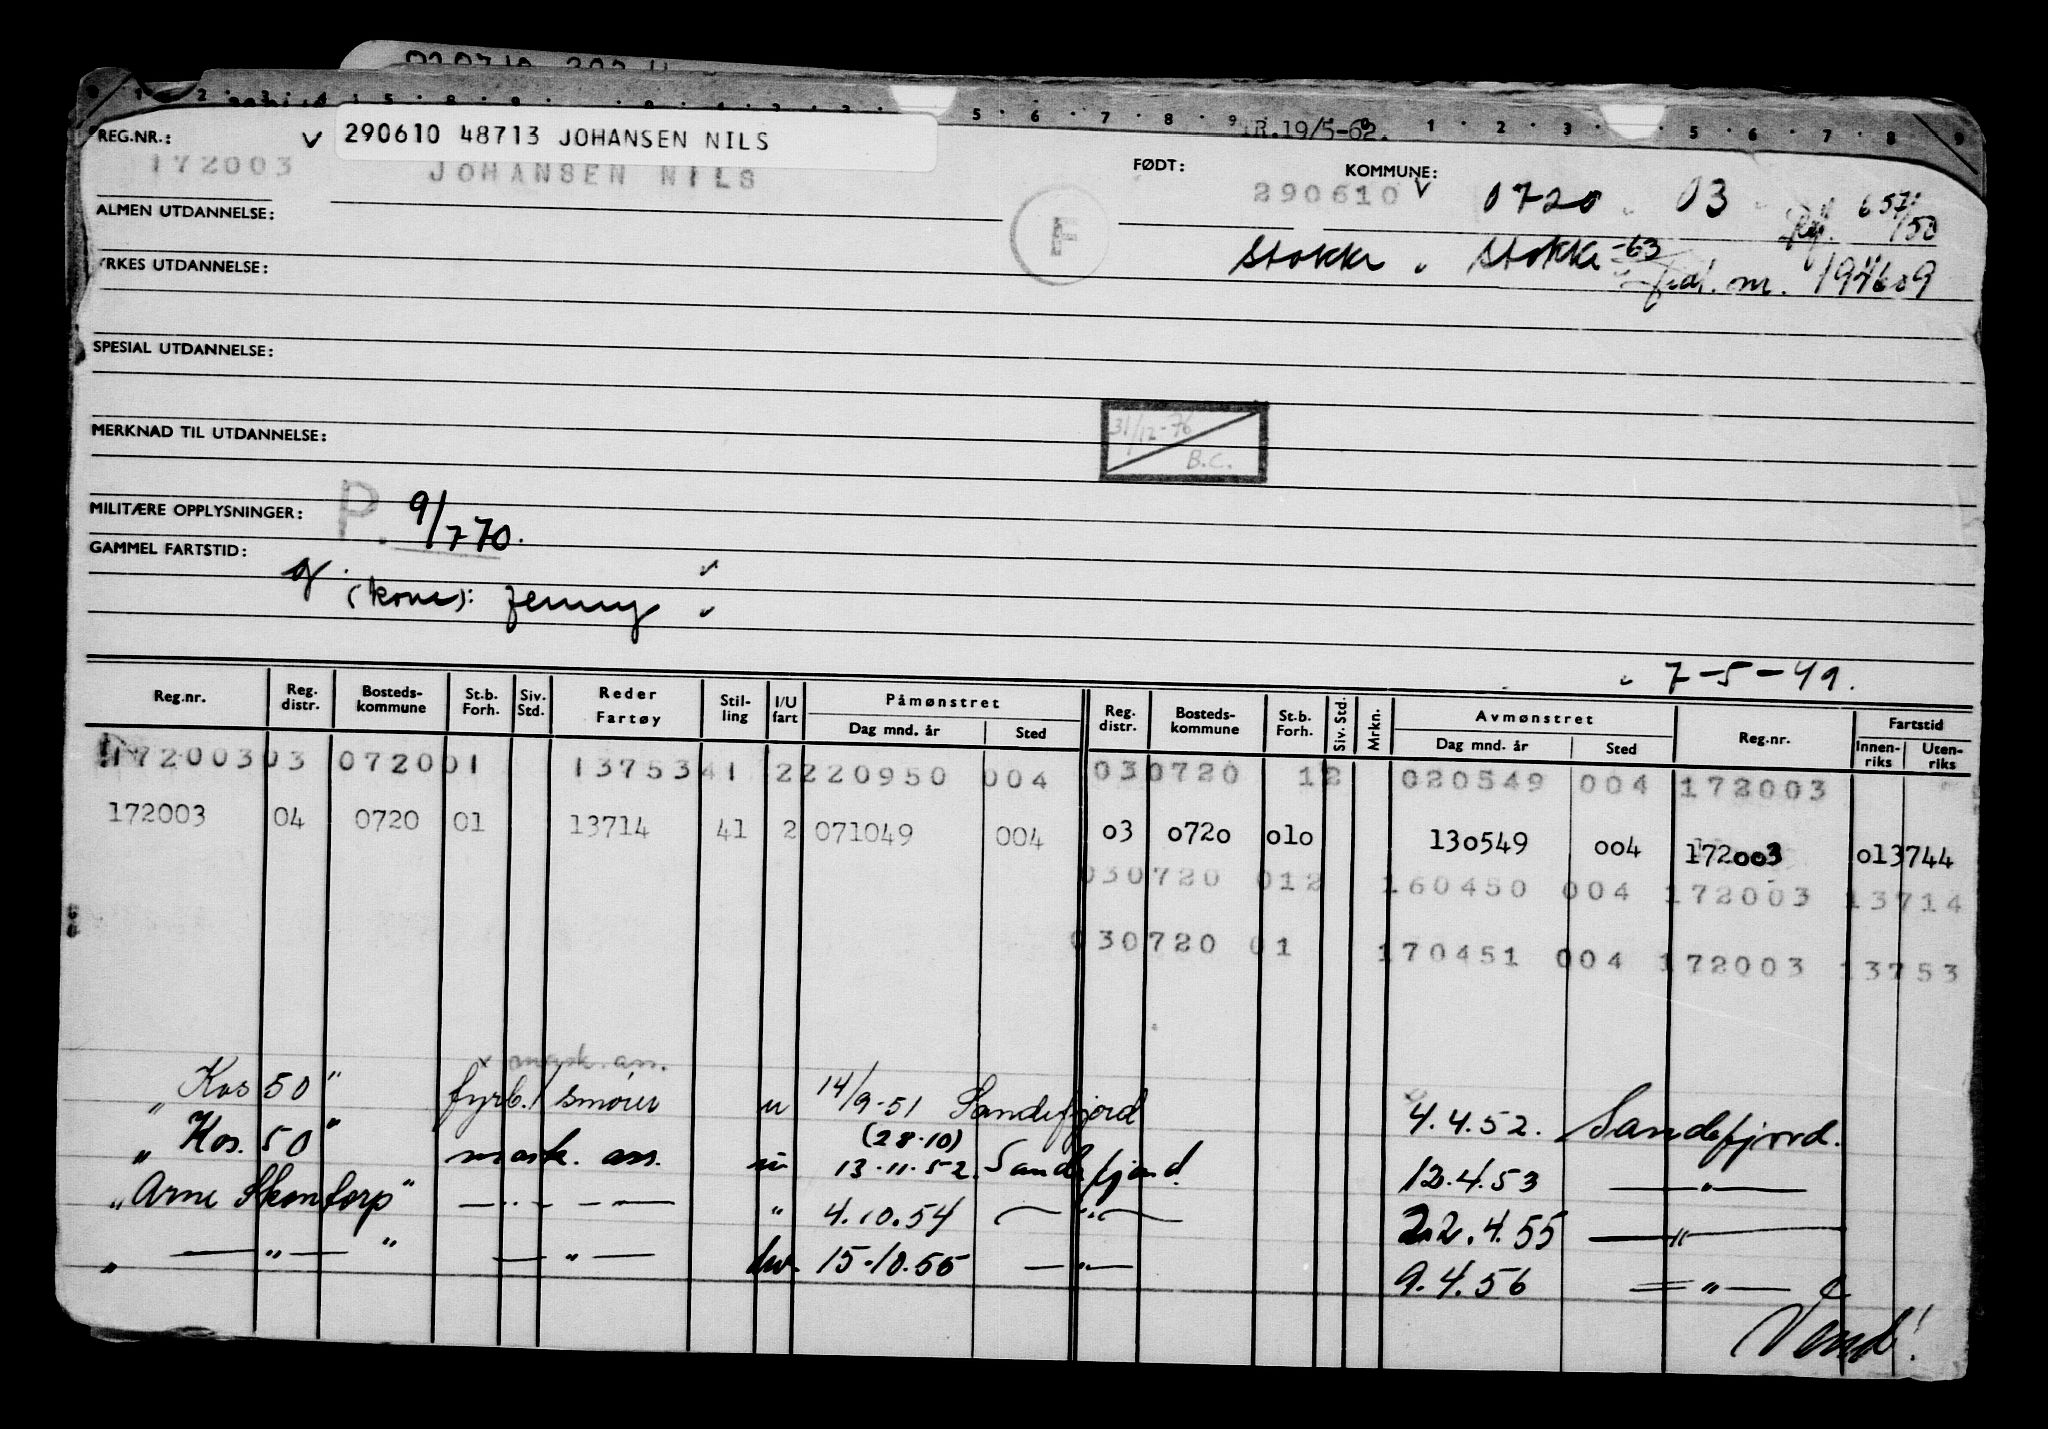 R.19/5-62.
REG.NR.: v 290610 48713 JOHANSEN NILS
172003 JOHANSEN NILS FØDT: 290610 v KOMMUNE: 0720 03
ALMEN UTDANNELSE: F
Stokke Stokke -63
YRKES UTDANNELSE: 194609
SPESIAL UTDANNELSE:
MERKNAD TIL UTDANNELSE: 31/12-76 B.C.
MILITÆRE OPPLYSNINGER: P. 9/770.
GAMMEL FARTSTID: g.
(kone): Jenny
7-5-49.
Reg.nr. Reg. distr. Bosteds-kommune St.b. Forh. Siv. Std. Reder Fartøy Stil-ling I/U fart Påmønstret Dag mnd. år Sted Reg. distr. Bosteds-kommune St.b. Forh. Siv. Std. Mrkn. Avmønstret Dag mnd. år Sted Reg.nr. Fartstid Innen-riks Uten-riks
172003 03 0720 01 13753 41 2 220950 004 03 0720 12 020549 004 172003
172003 04 0720 01 13714 41 2 071049 004 03 0720 010 130549 004 172003 013744
030720 012 160450 004 172003 13714
030720 01 170451 004 172003 13753
v mask. ass.
"Kos 50" fyrb./smører u 14/9-51 Sandefjord 4.4.52. Sandefjord.
(28.10)
"Kos. 50" mask. ass. u 13.11.52. Sandefjord. 12.4.53 — " —
"Arne Skontorp" — " — " 4.10.54 — " — 22.4.55 — " —
" — " — " — " — hv. 15.10.55 — " — 9.4.56 — " —
Vend!